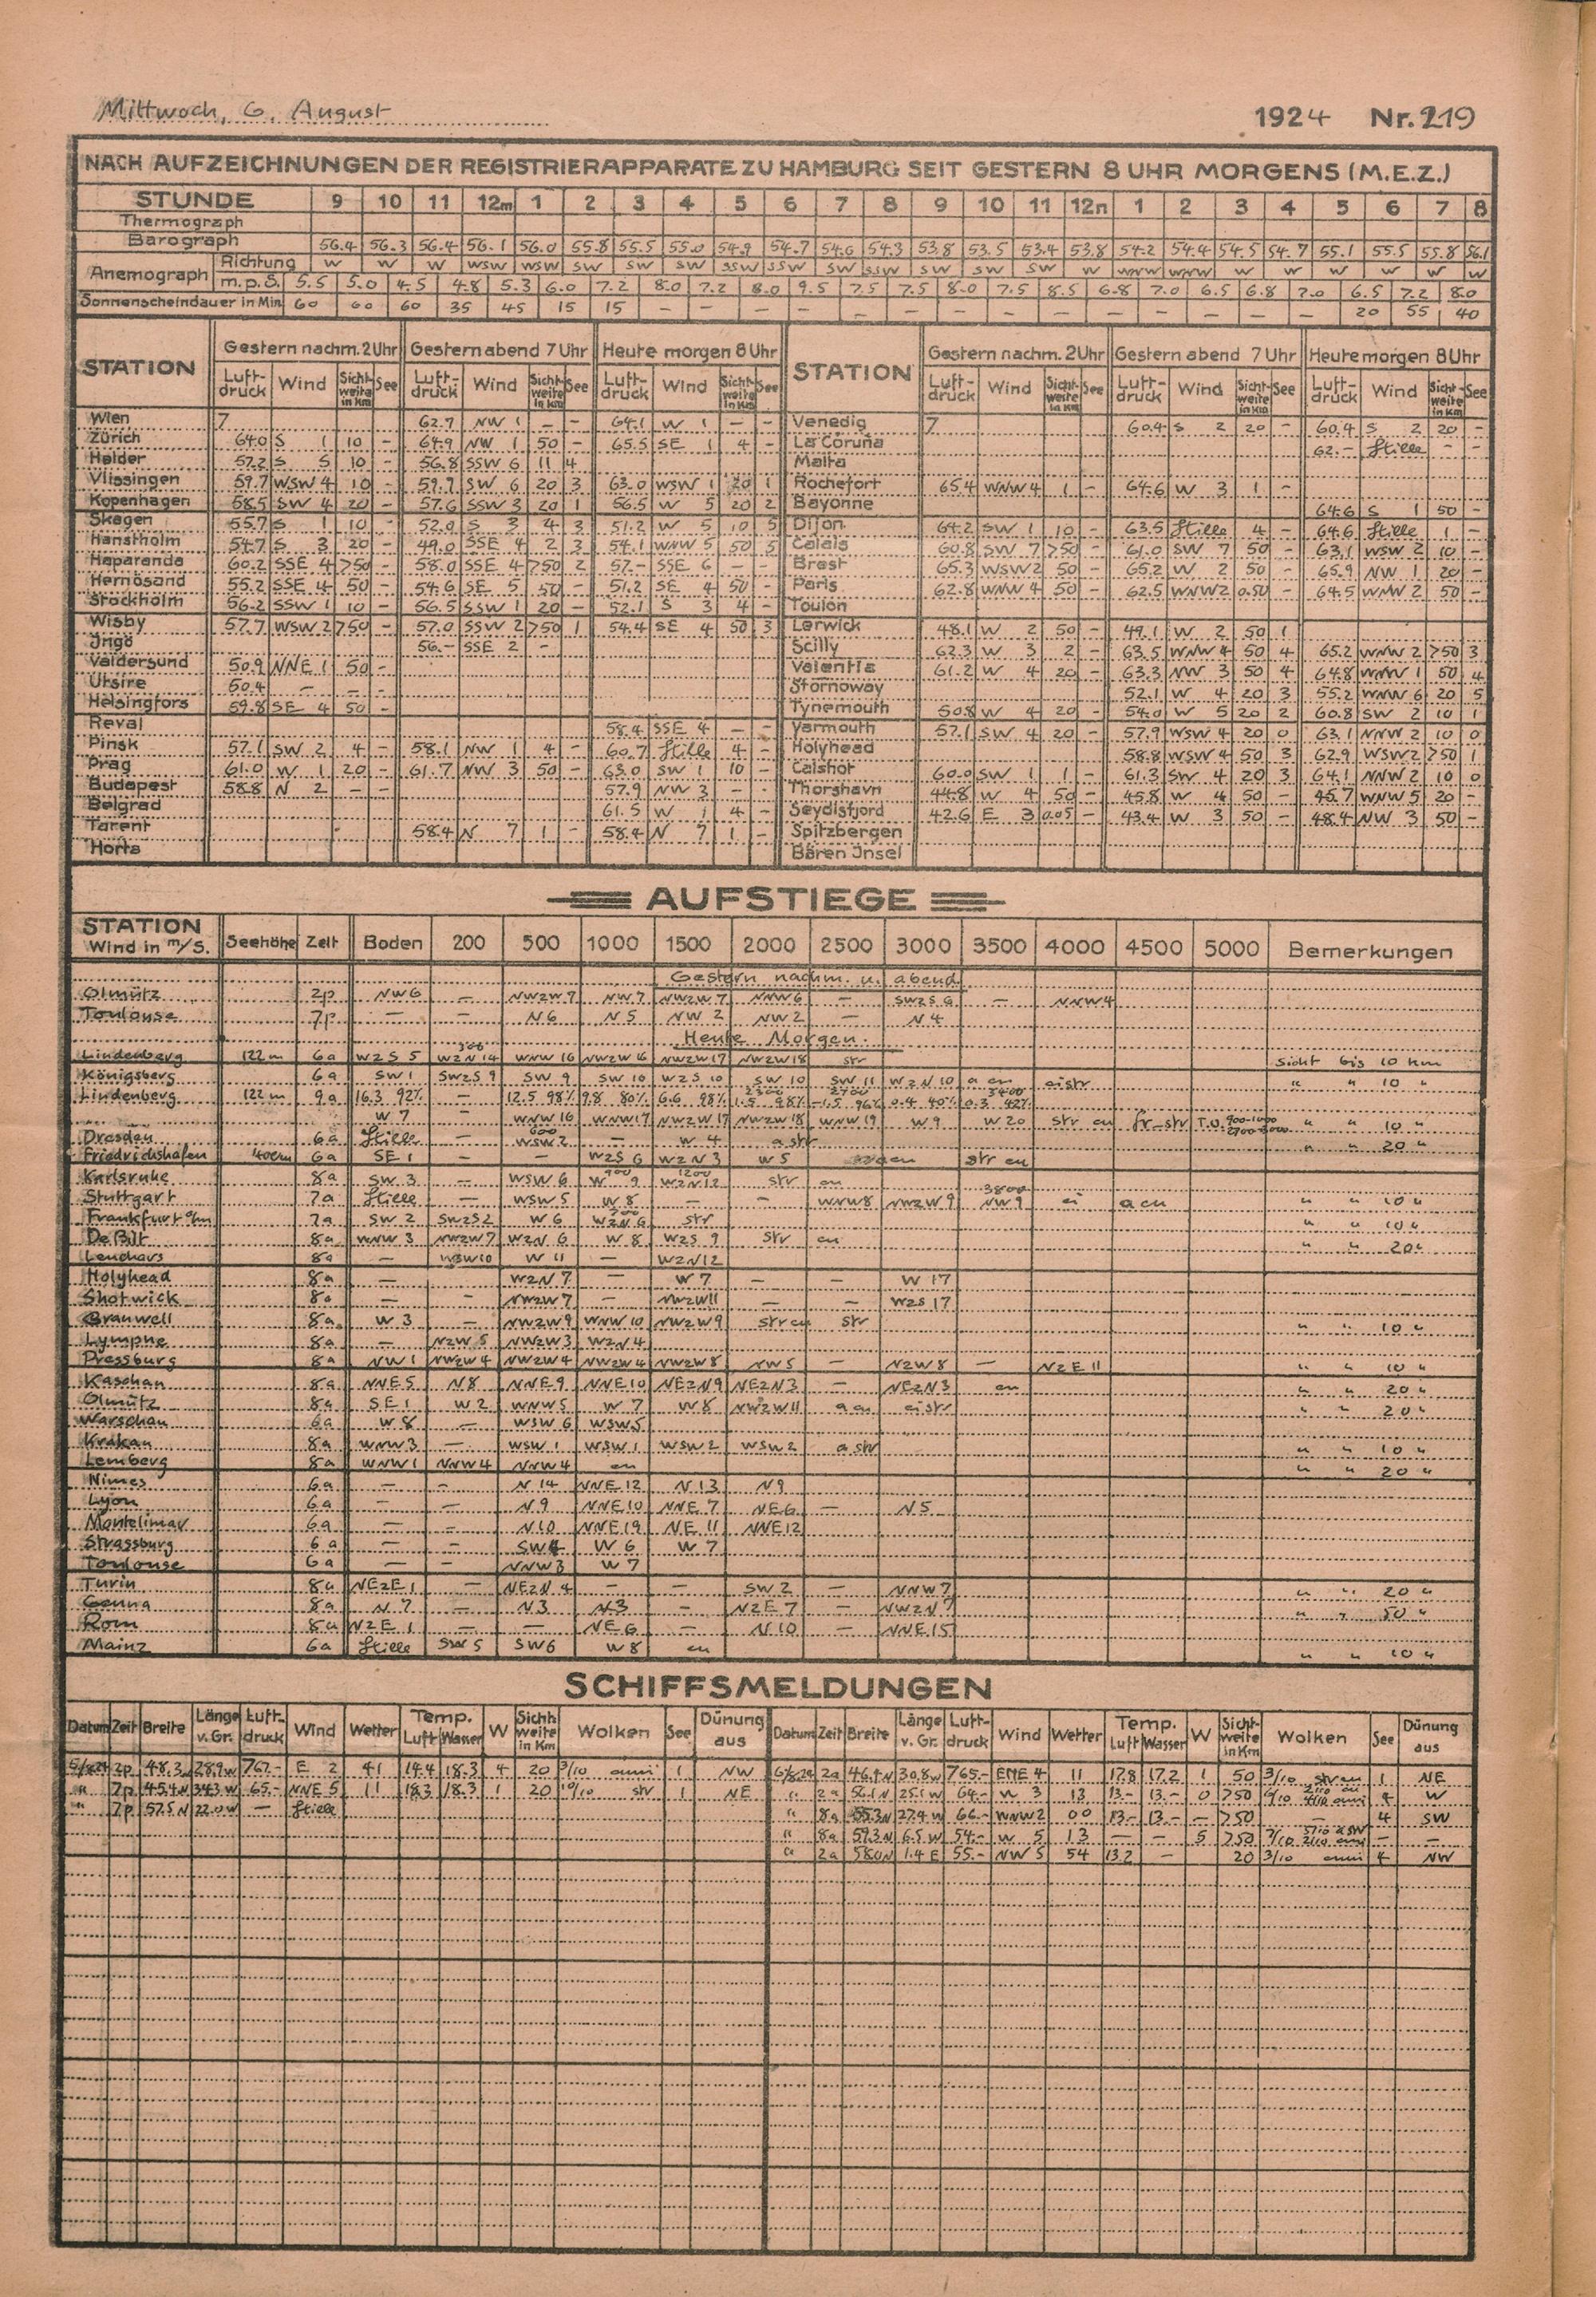 Mittwoch, 6. August 1924 Nr. 219
NACH AUFZEICHNUNGEN DER REGISTRIERAPPARATE ZU HAMBURG SEIT GESTERN 8 UHR MORGENS (M.E.Z.)
STUNDE 9 10 11 12m 1 2 3 4 5 6 7 8 9 10 11 12n 1 2 3 4 5 6 7 8
Thermograph
Barograph 56.4 56.3 56.4 56.1 56.0 55.8 55.5 55.0 54.9 54.7 54.6 54.3 53.8 53.5 53.4 53.8 54.2 54.4 54.5 54.7 55.1 55.5 55.8 56.1
Anemograph Richtung W W W WSW WSW SW SW SW SSW SSW SW SSW SW SW SW W WNW WNW W W W W W W
m.p.S. 5.5 5.0 4.5 4.8 5.3 6.0 7.2 8.0 7.2 8.0 9.5 7.5 7.5 8.0 7.5 8.5 6.8 7.0 6.5 6.8 7.0 6.5 7.2 8.0
Sonnenscheindauer in Min. 60 60 60 35 45 15 15 – – – – – – – – – – – – – – 20 55 40
STATION Gestern nachm. 2 Uhr Gestern abend 7 Uhr Heute morgen 8 Uhr STATION Gestern nachm. 2 Uhr Gestern abend 7 Uhr Heute morgen 8 Uhr
Luft-druck Wind Sicht-weite in Km See Luft-druck Wind Sicht-weite in Km See Luft-druck Wind Sicht-weite in Km See Luft-druck Wind Sicht-weite in Km See Luft-druck Wind Sicht-weite in Km See Luft-druck Wind Sicht-weite in Km See
Wien 7 62.7 NW 1 – – 64.1 W 1 – – Venedig 7 60.4 S 2 20 – 60.4 S 2 20 –
Zürich 64.0 S 1 10 – 64.9 NW 1 50 – 65.5 SE 1 4 – La Coruña 62.– Stille – –
Helder 57.2 S 5 10 – 56.8 SSW 6 11 4 Malta
Vlissingen 59.7 WSW 4 10 – 59.7 SW 6 20 3 63.0 WSW 1 20 1 Rochefort 65.4 WNW 4 1 – 64.6 W 3 1 –
Kopenhagen 58.5 SW 4 20 – 57.6 SSW 3 20 1 56.5 W 5 20 2 Bayonne 64.6 S 1 50 –
Skagen 55.7 S 1 10 – 52.0 S 3 4 3 51.2 W 5 10 5 Dijon 64.2 SW 1 10 – 63.5 Stille 4 – 64.6 Stille 1 –
Hanstholm 54.7 S 3 20 – 49.0 SSE 4 2 3 54.1 WNW 5 50 5 Calais 60.8 SW 7 >50 – 61.0 SW 7 50 – 63.1 WSW 2 10 –
Haparanda 60.2 SSE 4 >50 – 58.0 SSE 4 >50 2 57.– SSE 6 – – Brest 65.3 WSW 2 50 – 65.2 W 2 50 – 65.9 NW 1 20 –
Hernösand 55.2 SSE 4 50 – 54.6 SE 5 50 – 51.2 SE 4 50 – Paris 62.8 WNW 4 50 – 62.5 WNW 2 0.50 – 64.5 WNW 2 50 –
Stockholm 56.2 SSW 1 10 – 56.5 SSW 1 20 – 52.1 S 3 4 – Toulon
Wisby 57.7 WSW 2 >50 – 57.0 SSW 2 >50 1 54.4 SE 4 50 3 Lerwick 48.1 W 2 50 – 49.1 W 2 50 1
Ingö 56.– SSE 2 – Scilly 62.3 W 3 2 – 63.5 WNW 4 50 4 65.2 WNW 2 >50 3
Valdersund 50.9 NNE 1 50 – Valentia 61.2 W 4 20 – 63.3 NW 3 50 4 64.8 WNW 1 50 4
Utsire 50.4 – – – Stornoway 52.1 W 4 20 3 55.2 WNW 6 20 5
Helsingfors 59.8 SE 4 50 – Tynemouth 50.8 W 4 20 – 54.0 W 5 20 2 60.8 SW 2 10 1
Reval 58.4 SSE 4 – – Yarmouth 57.1 SW 4 20 – 57.9 WSW 4 20 0 63.1 NNW 2 10 0
Pinsk 57.1 SW 2 4 – 58.1 NW 1 4 – 60.7 Stille 4 – Holyhead 58.8 WSW 4 50 3 62.9 WSW 2 >50 1
Prag 61.0 W 1 20 – 61.7 NW 3 50 – 63.0 SW 1 10 – Calshot 60.0 SW 1 1 – 61.3 SW 4 20 3 64.1 NNW 2 10 0
Budapest 58.8 N 2 – – 57.9 NW 3 – – Thorshavn 44.8 W 4 50 – 45.8 W 4 50 – 45.7 WNW 5 20 –
Belgrad 61.5 W 1 4 – Seydisfjord 42.6 E 3 0.05 – 43.4 W 3 50 – 48.4 NW 3 50 –
Tarent 58.4 N 7 1 – 58.4 N 7 1 – Spitzbergen
Horta Bären Insel
AUFSTIEGE
STATION Wind in m/S. Seehöhe Zeit Boden 200 500 1000 1500 2000 2500 3000 3500 4000 4500 5000 Bemerkungen
Gestern nachm. u. abend
Olmütz 2p NW6 – NWzW 7 NW 7 NWzW 7 NNW 6 – SWzS 6 – NNW 4
Toulouse 7p – – N 6 N 5 NW 2 NW 2 – N 4
Heute Morgen.
Lindenberg 122 m 6a WzS 5 300 WzN 14 WNW 16 NWzW 16 NWzW 17 NWzW 18 str Sicht bis 10 km
Königsberg 6a SW 1 SWzS 9 SW 9 SW 10 WzS 10 SW 10 SW 11 WzN 10 a cu cistr " " 10 "
Lindenberg 122 m 9a 16.3 92% – 12.5 98% 9.8 80% 6.6 98% 2300 1.5 98% 2700 -1.5 96% 0.4 40% 3400 0.3 42%
W 7 – WNW 16 WNW 17 NWzW 17 NWzW 18 WNW 19 W 9 W 20 str cu fr-str T.U. 900-1000 2700-3000 " " 10 "
Dresden 6a Stille – 600 WSW 2 – W 4 a str " " 20 "
Friedrichshafen 400m 6a SE 1 – – WzS 6 WzN 3 W 5 str cu
Karlsruhe 8a SW 3 – WSW 6 900 W 9 1200 WzN 12 str cu
Stuttgart 7a Stille – WSW 5 W 8 – – WNW 8 NWzW 9 3800 NW 9 ci a cu " " 10 "
Frankfurt a/m 7a SW 2 SWzS 2 W 6 700 WzN 6 str " " 10 "
De Bilt 8a WNW 3 NWzW 7 WzN 6 W 8 WzS 9 str cu " " 20 "
Leuchars 8a – W 11 – WzN 12
Holyhead 8a – WzN 7 – W 7 – – W 17
Shotwick 8a – – NWzW 7 – NWzW 11 – – WzS 17
Cranwell 8a W 3 – NWzW 9 WNW 10 NWzW 9 str cu str " " 10 "
Lympne 8a – NzW 5 NWzW 3 WzN 4
Pressburg 8a NW 1 NWzW 4 NWzW 4 NWzW 4 NWzW 8 NW 5 – NzW 8 – NzE 11 " " 10 "
Kaschau 8a NNE 5 N 8 NNE 9 NNE 10 NEzN 9 NEzN 3 – NEzN 3 cu " " 20 "
Olmütz 8a SE 1 W 2 WNW 5 W 7 W 8 NWzW 11 a cu cistr " " 20 "
Warschau 6a W 8 – WSW 6 WSW 5
Krakau 8a WNW 3 – WSW 1 WSW 1 WSW 2 WSW 2 a str " " 10 "
Lemberg 8a WNW 1 NNW 4 NNW 4 cu " " 20 "
Nimes 6a – – N 14 NNE 12 N 13 N 9
Lyon 6a – – N 9 NNE 10 NNE 7 NE 6 – N 5
Montelimar 6a – – N 10 NNE 19 NE 11 NNE 12
Strassburg 6a – – SW 4 W 6 W 7
Toulouse 6a – – NNW 3 W 7
Turin 8a NEzE 1 – NEzN 4 – – SW 2 – NNW 7 " " 20 "
Genua 8a N 7 – N 3 N 3 – NzE 7 – NWzN 7 " " 50 "
Rom 8a NzE 1 – – NE 6 – N 10 – NNE 15
Mainz 6a Stille SW 5 SW 6 W 8 cu " " 10 "
SCHIFFSMELDUNGEN
Datum Zeit Breite Länge v. Gr. Luft-druck Wind Wetter Temp. Luft Wasser W Sicht-weite in Km Wolken See Dünung aus Datum Zeit Breite Länge v. Gr. Luft-druck Wind Wetter Temp. Luft Wasser W Sicht-weite in Km Wolken See Dünung aus
5/8.24 2p 48.3 N 28.9 W 767.– E 2 41 14.4 18.3 4 20 3/10 cuni 1 NW 6/8.24 2a 46.4 N 30.8 W 765.– ENE 4 11 17.8 17.2 1 50 3/10 str cu 1 NE
" 7p 45.4 N 34.3 W 65.– NNE 5 11 18.3 18.3 1 20 10/10 str 1 NE " 2a 56.1 N 25.1 W 64.– W 3 13 13.– 13.– 0 >50 4 W
" 7p 57.5 N 22.0 W – Stille " 8a 55.3 N 27.4 W 66.– WNW 2 00 13.– 13.– – >50 – 4 SW
" 8a 59.3 N 6.5 W 54.– W 5 13 – – 5 >50 – –
" 2a 58.0 N 1.4 E 55.– NW 5 54 13.2 – 20 3/10 cuni 4 NW